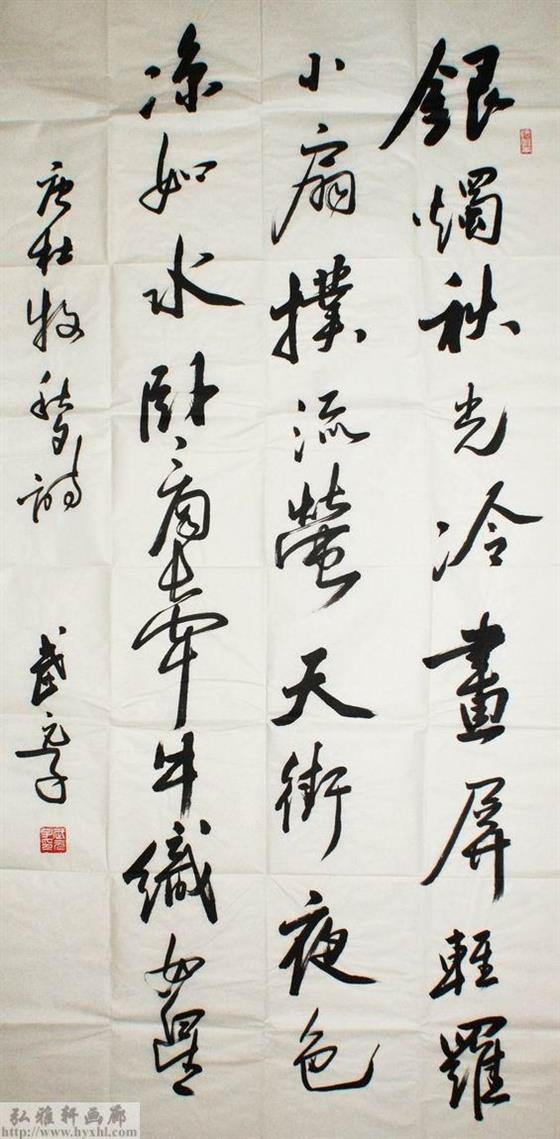 銀燭秋光冷畫屏輕羅
小扇撲流螢天街夜色
凉如水卧看牽牛織女星
唐杜牧秋夕詩
武
弘雅轩画廊
http://www.hyxhl.com